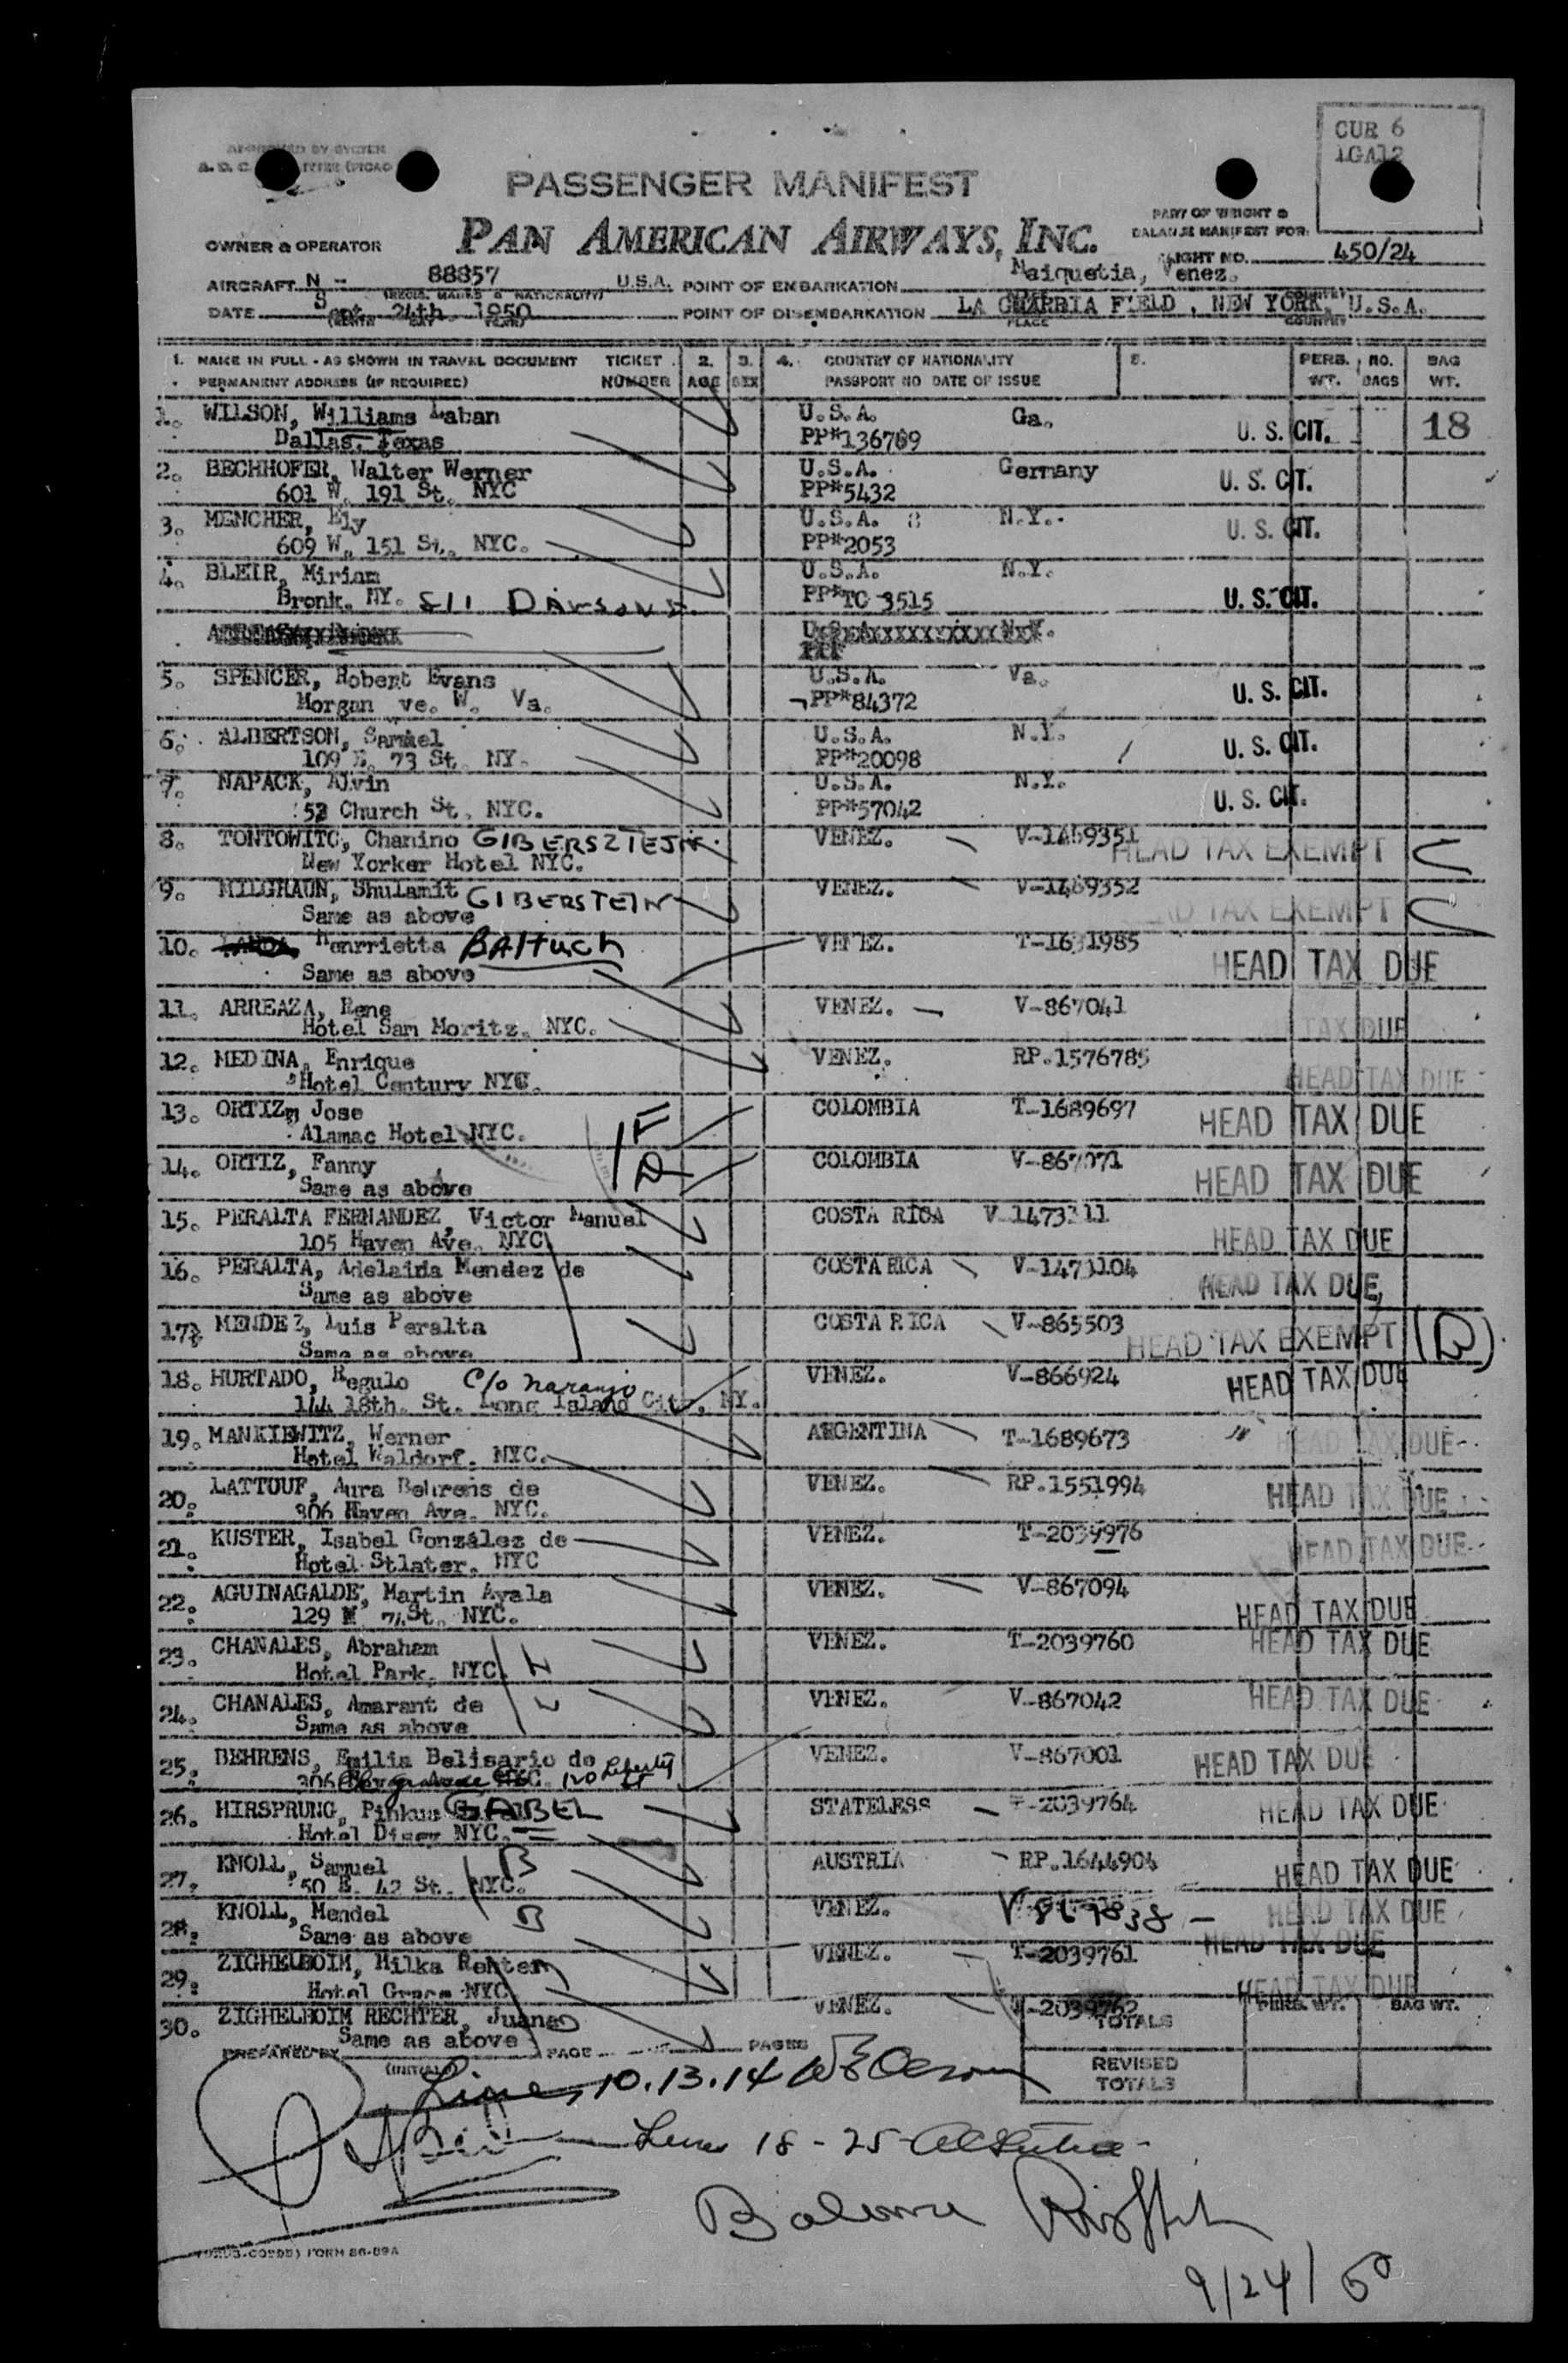 CUR 6
1GA12
PASSENGER MANIFEST
PAN AMERICAN AIRWAYS, INC.
OWNER & OPERATOR
PART OF WEIGHT &
BALANCE MANIFEST FOR:
FLIGHT NO. 450/24
AIRCRAFT N - 88857 U.S.A. POINT OF EMBARKATION Maiquetia, Venez.
(REGIS. MARKS & NATIONALITY)
DATE Sept. 24th 1950 POINT OF DISEMBARKATION LA GUARRIA FIELD , NEW YORK, U.S.A.
PLACE COUNTRY
1. NAME IN FULL - AS SHOWN IN TRAVEL DOCUMENT TICKET 2. 3. 4. COUNTRY OF NATIONALITY 5. PERS. NO. BAG
PERMANENT ADDRESS (IF REQUIRED) NUMBER AGE SEX PASSPORT NO DATE OF ISSUE WT. BAGS WT.
1. WILSON, Williams Laban U.S.A. Ga. U. S. CIT. 18
Dallas, Texas PP#136789
2. BECHHOFER, Walter Werner U.S.A. Germany U. S. CIT.
601 W. 191 St. NYC PP#5432
3. MENCHER, Ely U.S.A. N.Y. U. S. CIT.
609 W. 151 St. NYC. PP#2053
4. BLEIR, Miriam U.S.A. N.Y. U. S. CIT.
Bronk. NY. 811 PP#TC 3515
5. SPENCER, Robert Evans U.S.A. Va. U. S. CIT.
Morgan ve. W. Va. PP#84372
6. ALBERTSON, Samuel U.S.A. N.Y. U. S. CIT.
109 E. 73 St. NY. PP#20098
7. NAPACK, Alvin U.S.A. N.Y. U. S. CIT.
53 Church St. NYC. PP#57042
8. TONTOWITC, Chanino GIBERSZTEJN. VENEZ. V-1469351 HEAD TAX EXEMPT
New Yorker Hotel NYC.
9. MILGRAUN, Shulamit GIBERSTEIN VENEZ. V-1469352 HEAD TAX EXEMPT
Same as above
10. Henrrietta BAltuch VENEZ. T-1631985 HEAD TAX DUE
Same as above
11. ARREAZA, Rene VENEZ. V-867041 TAX DUE
Hotel San Moritz. NYC.
12. MEDINA, Enrique VENEZ. RP.1576785 HEAD TAX DUE
Hotel Century NYC.
13. ORTIZ, Jose COLOMBIA T-1689697 HEAD TAX DUE
Alamac Hotel NYC.
14. ORTIZ, Fanny COLOMBIA V-867071 HEAD TAX DUE
Same as above
15. PERALTA FERNANDEZ, Victor Manuel COSTA RICA V-1473311 HEAD TAX DUE
105 Haven Ave. NYC
16. PERALTA, Adelaida Mendez de COSTA RICA V-1473104 HEAD TAX DUE
Same as above
17. MENDEZ, Luis Peralta COSTA RICA V-865503 HEAD TAX EXEMPT (D)
Same as above
18. HURTADO, Regulo C/o naranjo VENEZ. V-866924 HEAD TAX DUE
144 18th. St. Long Island City, NY.
19. MANKIEWITZ, Werner ARGENTINA T-1689673 HEAD TAX DUE
Hotel Waldorf. NYC.
20. LATTOUF, Aura Behrens de VENEZ. RP.1551994 HEAD TAX DUE
306 Haven Ave. NYC.
21. KUSTER, Isabel González de VENEZ. T-2039976 HEAD TAX DUE
Hotel Stlater. NYC
22. AGUINAGALDE, Martin Ayala VENEZ. V-867094 HEAD TAX DUE
129 W 74 St. NYC.
23. CHANALES, Abraham VENEZ. T-2039760 HEAD TAX DUE
Hotel Park. NYC
24. CHANALES, Amarant de VENEZ. V-867042 HEAD TAX DUE
Same as above
25. BEHRENS, Emilia Belisario de VENEZ. V-867001 HEAD TAX DUE
306 120 Liberty St
26. HIRSPRUNG, Pinkus GABEL STATELESS T-2039764 HEAD TAX DUE
NYC.
27. KNOLL, Samuel B AUSTRIA RP.1644904 HEAD TAX DUE
50 E. 42 St. NYC.
28. KNOLL, Mendel B VENEZ. HEAD TAX DUE
Same as above
29. ZIGHELBOIM, Milka Rehter VENEZ. T-2039761 HEAD TAX DUE
Hotel Grace NYC
30. ZIGHELBOIM RECHTER, Juana VENEZ. T-2039762 HEAD TAX DUE
Same as above
PREPARED BY (INITIALS) PAGE PAGES TOTALS PERS. WT. BAG WT.
REVISED
TOTALS
Lines 10.13.14
Lines 18-25
9/24/50
FORM 86-89A